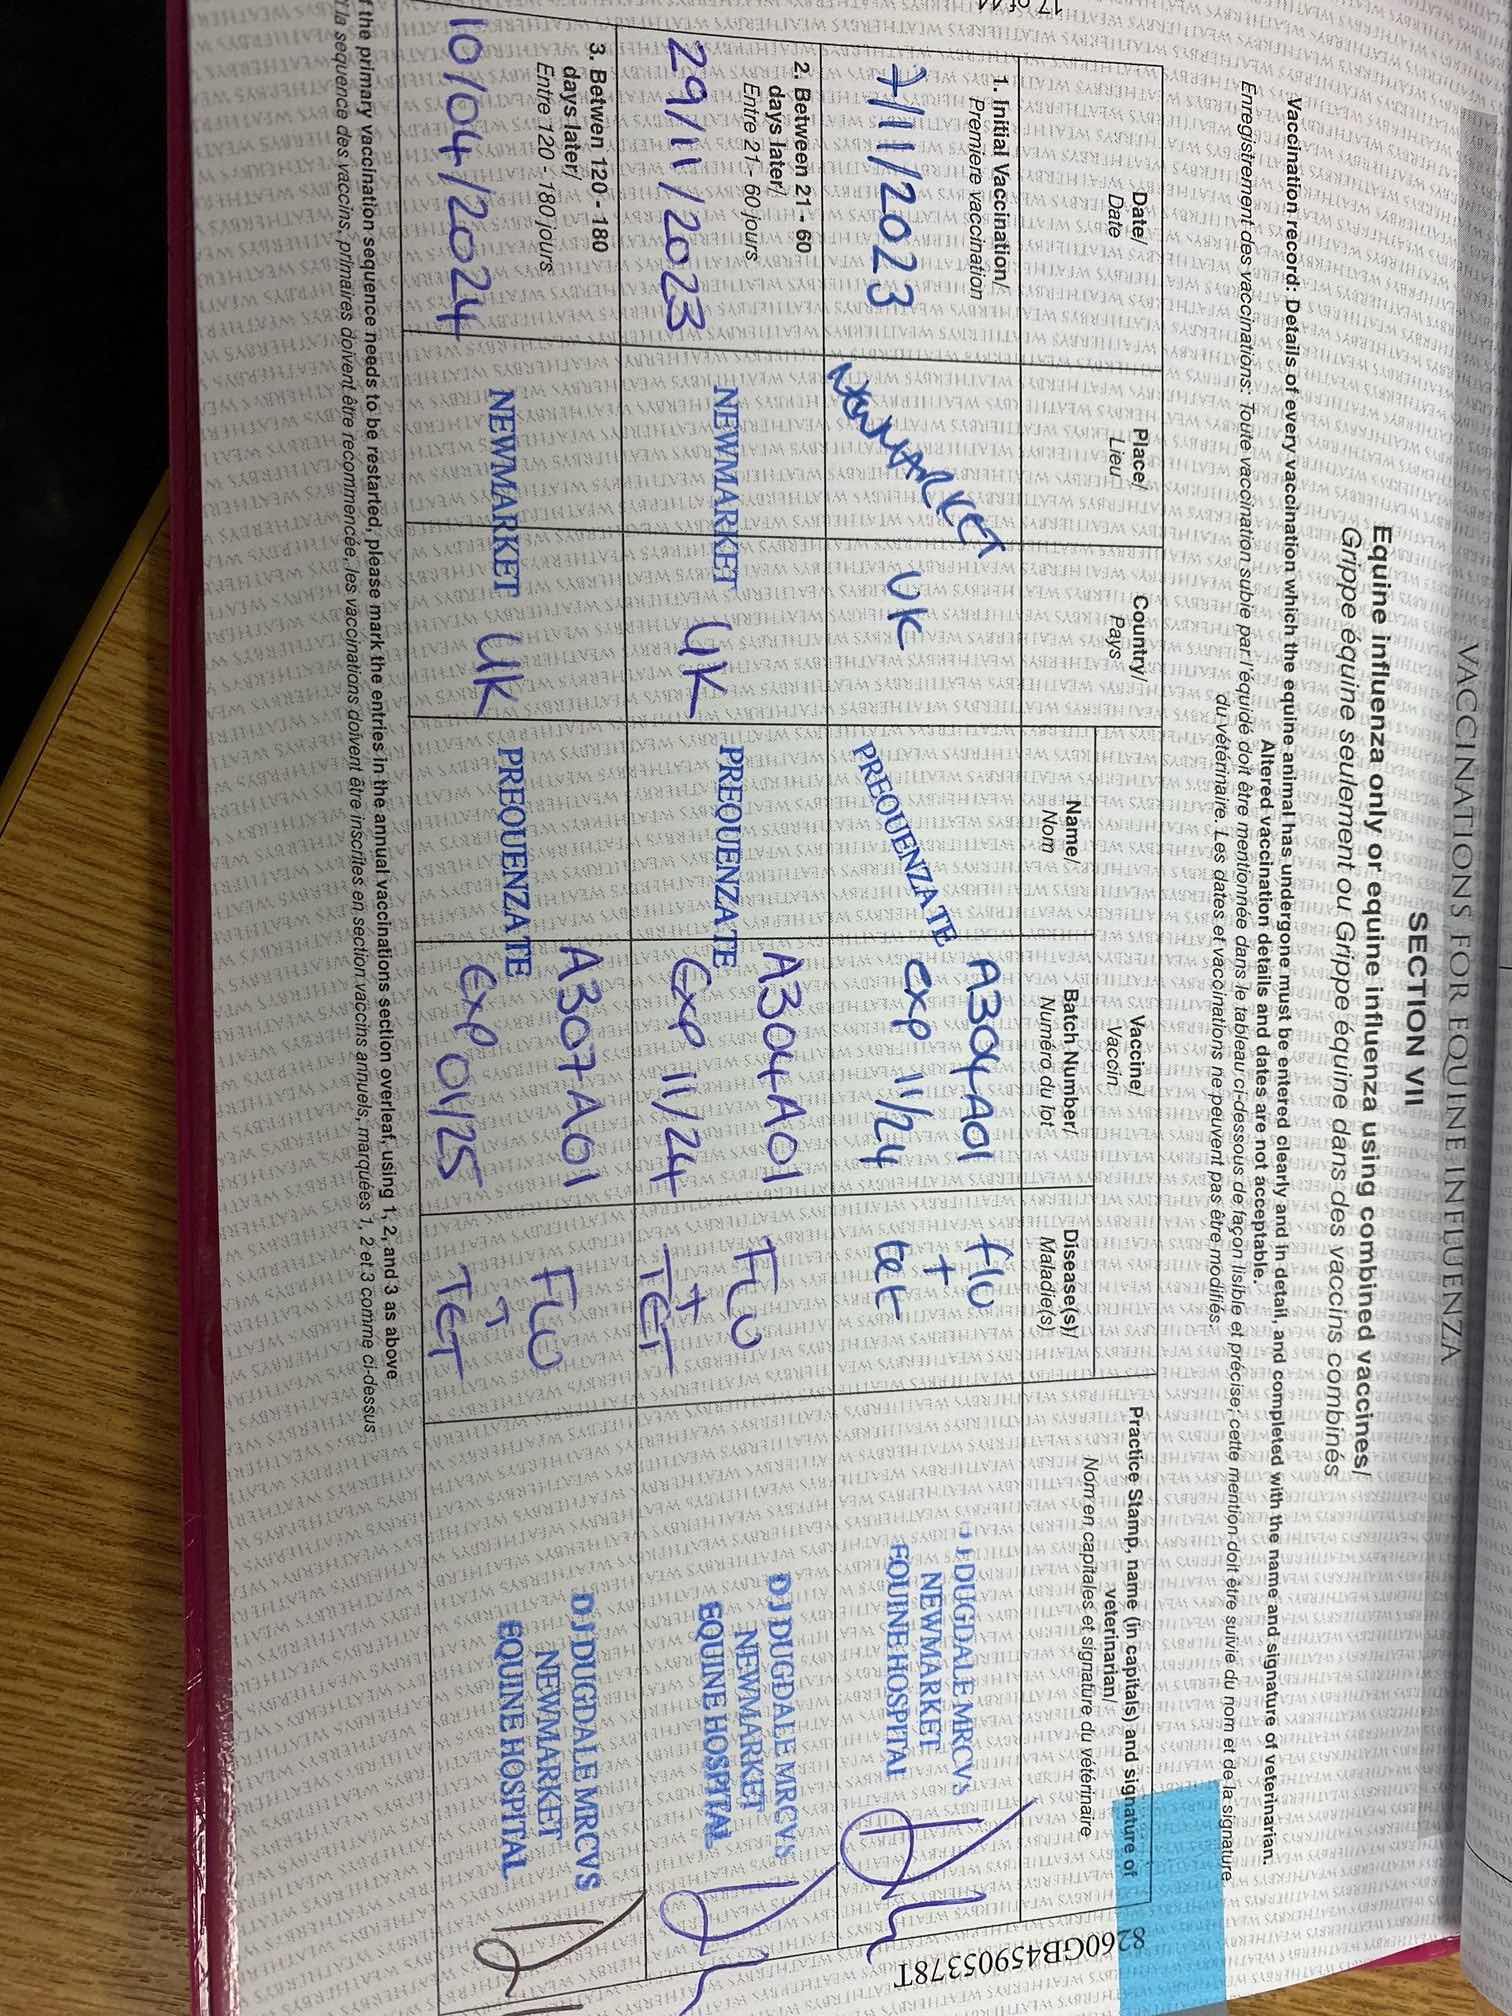 VACCINATIONS FOR EQUINE INFLUENZA
SECTION VII
Equine influenza only or equine influenza using combined vaccines/
Grippe équine seulement ou Grippe équine dans des vaccins combinés
Vaccination record: Details of every vaccination which the equine animal has undergone must be entered clearly and in detail, and completed with the name and signature of veterinarian.
Altered vaccination details and dates are not acceptable.
Enregistrement des vaccinations: Toute vaccination subie par l'équidé doit être mentionnée dans le tableau ci-dessous de façon lisible et précise; cette mention doit être suivie du nom et de la signature
du vétérinaire. Les dates et vaccinations ne peuvent pas être modifiés.
Date/
Date
Place/
Lieu
Country/
Pays
Vaccine/
Vaccin
Name/
Nom
Batch Number/
Numéro du lot
Disease(s)/
Maladie(s)
Practice Stamp, name (in capitals) and signature of
veterinarian/
Nom en capitales et signature du vétérinaire
1. Initial Vaccination/
Premiere vaccination
7/11/2023
NEWMARKET
UK
PREQUENZA TE
A304A01
exp 11/24
flu
+
tet
DJ DUGDALE MRCVS
NEWMARKET
EQUINE HOSPITAL
2. Between 21 - 60
days later/
Entre 21 - 60 jours
29/11/2023
NEWMARKET
UK
PREQUENZA TE
A304A01
Exp 11/24
FLU
+
TET
DJ DUGDALE MRCVS
NEWMARKET
EQUINE HOSPITAL
3. Betwen 120 - 180
days later/
Entre 120 - 180 jours
10/04/2024
NEWMARKET
UK
PREQUENZA TE
A307A01
Exp 01/25
FLU
+
TET
DJ DUGDALE MRCVS
NEWMARKET
EQUINE HOSPITAL
f the primary vaccination sequence needs to be restarted, please mark the entries in the annual vaccinations section overleaf, using 1, 2, and 3 as above
la sequence des vaccins, primaires doivent être recommencée, les vaccinations doivent être inscrites en section vaccins annuels, marquées 1, 2 et 3 comme ci-dessus
17 of 44
8260GB45905378T